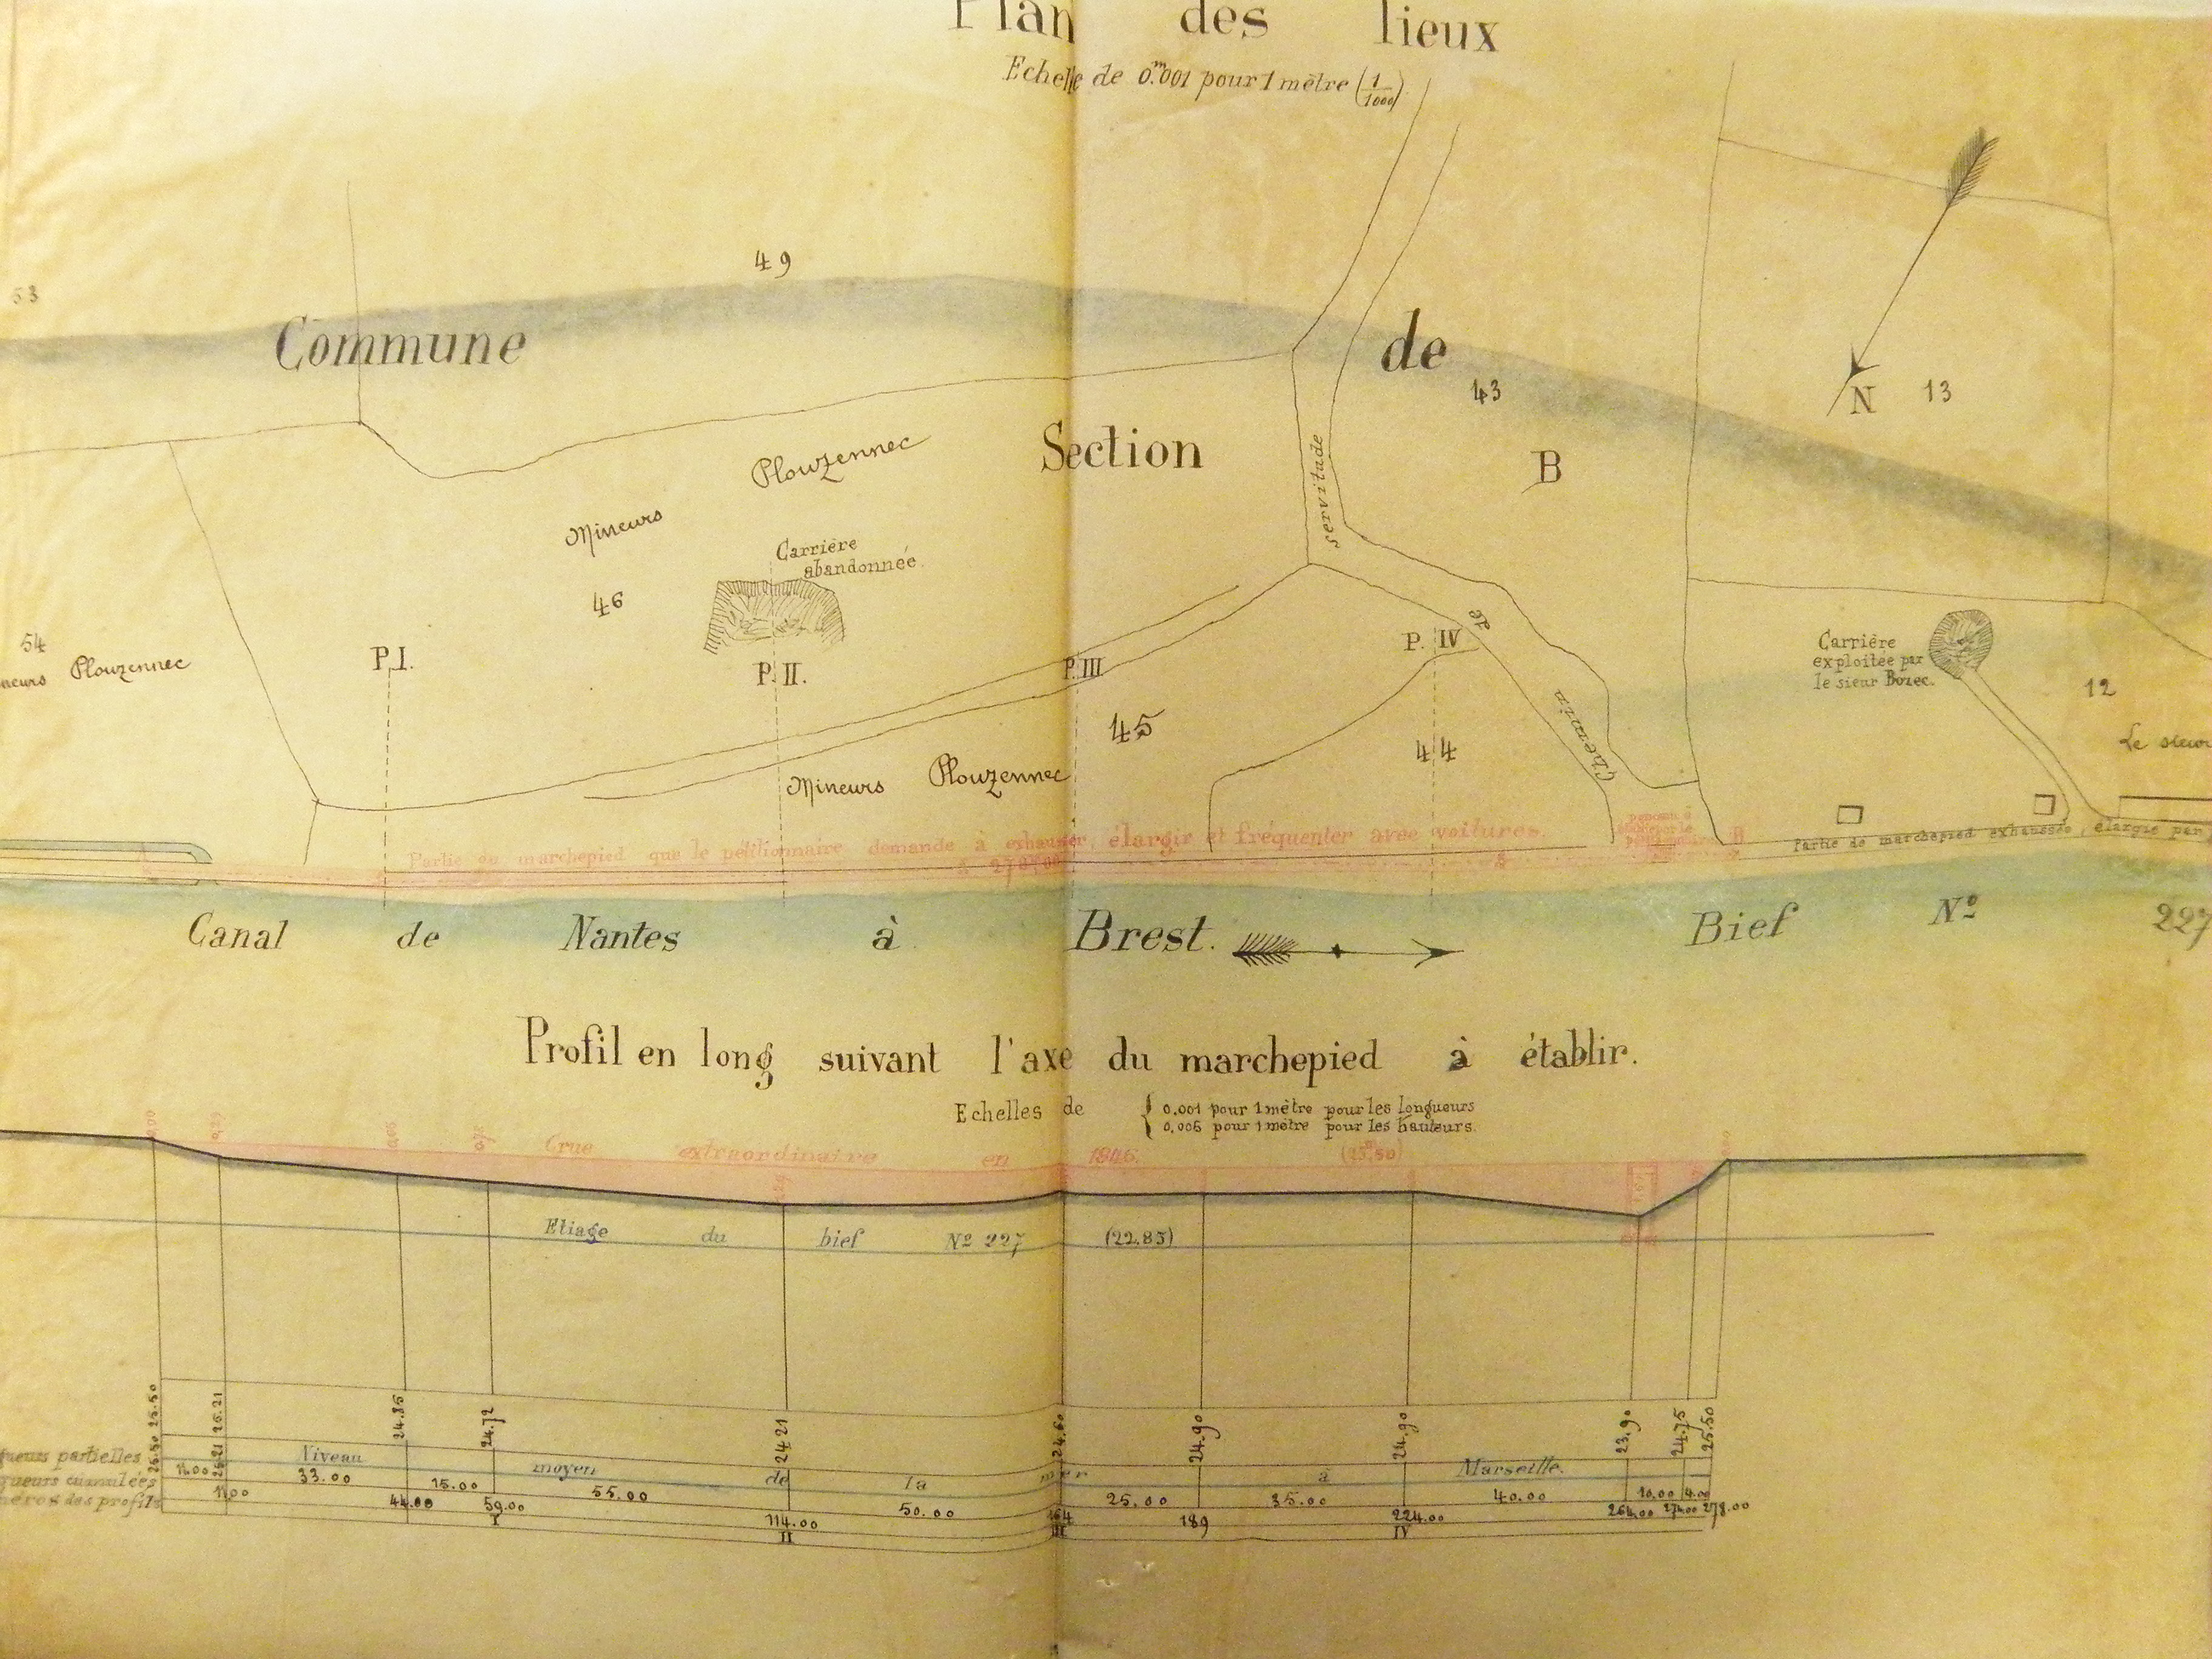 Plan des lieux
Echelle de 0.m001 pour 1 mètre (1/1000)
53
49
Commune de
43
N
13
Section B
Plouzennec
Mineurs
servitude
Carrière
abandonnée
46
54
Plouzennec
P. I.
P. II.
P. III
P. IV
de
Chemin
45
44
Mineurs Plouzennec
Carrière
exploitée par
le sieur Bozec.
12
Le sieur
Partie du marchepied que le pétitionnaire demande à exhausser, élargir et fréquenter avec voitures.
Partie de marchepied exhaussée, élargie par
Canal de Nantes à Brest. Bief No 227
Profil en long suivant l'axe du marchepied à établir.
Echelles de
0.001 pour 1 mètre pour les longueurs
0.005 pour 1 mètre pour les hauteurs.
Crue extraordinaire en 1846. (25,50)
Etiage du bief No 227 (22.83)
25.50 24.72 24.21 24.60 24.90 24.90 23.90 24.75 25.50
Niveau moyen de la mer à Marseille.
partielles 11.00 33.00 15.00 55.00 50.00 25.00 35.00 40.00 10.00 4.00
cumulées 11.00 44.00 59.00 114.00 164 189 224.00 264.00 274.00 278.00
des profils I II III IV